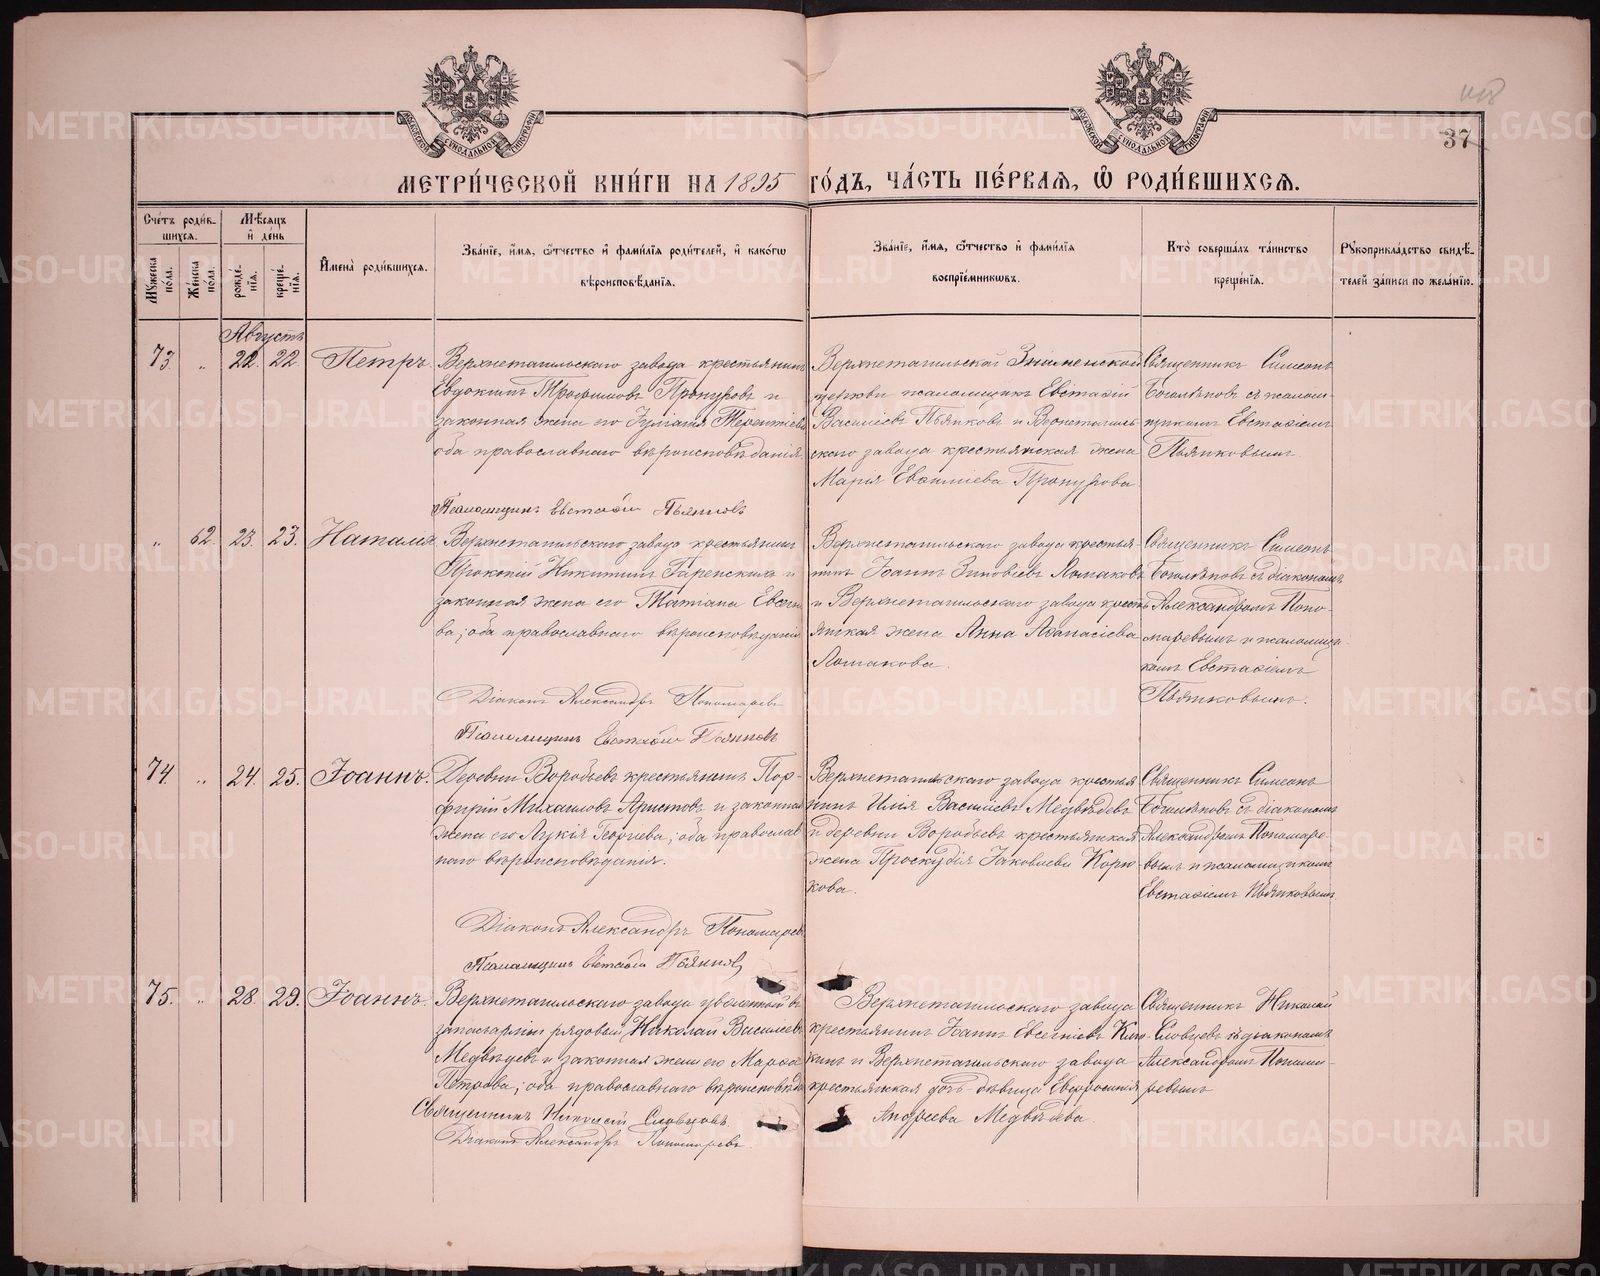 118
37
МОСКОВСКОЙ СѴНОДАЛЬНОЙ ТИПОГРАФІИ
МОСКОВСКОЙ СѴНОДАЛЬНОЙ ТИПОГРАФІИ
МЕТРИ́ЧЕСКОЙ КНИ́ГИ НА 1895 ГО́ДЪ, ЧА́СТЬ ПЕ́РВАЯ, Ѽ РОДИ́ВШИХСЯ.
Сче́тъ роди́в-
шихся.
Мꙋ́жеска по́ла.
Же́нска по́ла.
Мѣ́сяцъ
и҆ де́нь
рожде́-
нїѧ.
креще́-
нїѧ.
И҆мена̀ роди́вшихся.
Зва́нїе, и҆́мя, ѻ҆́тчество и҆ фами́лїѧ роди́телей, и҆ како́гѡ
вѣроисповѣ́данїѧ.
Зва́нїе, и҆́мя, ѻ҆́тчество и҆ фами́лїѧ
воспрїе́мниковъ.
Кто̀ соверша́лъ та́инство
креще́нїѧ.
Рꙋкоприкла́дство свидѣ́-
телей за́писи по жела́нїю.
Августъ
73. „ 22. 22. Петръ.
Верхнетагильскаго завода крестьянинъ
Евдокимъ Трофимовъ Прокуровъ и
законная жена его Терентіева
оба православнаго вѣроисповѣданія.
Псаломщикъ Евстафій Пьянковъ
Верхнетагильской Знаменской
церкви псаломщикъ Евстафій
Васильевъ Пьянковъ и Верхнетагиль-
скаго завода крестьянская жена
Марія Прокурова
Священникъ Симеонъ
Боголѣповъ съ псалом-
щикомъ Евстафіемъ
Пьянковымъ
„ 62. 23. 23. Наталія
Верхнетагильскаго завода крестьянинъ
Прокопій Никитинъ и
законная жена его Татіана Евсеіе-
ва; оба православнаго вѣроисповѣданія
Діаконъ Александръ Пономаревъ
Псаломщикъ Евстафій Пьянковъ
Верхнетагильскаго завода крестья-
нинъ Іоаннъ Зиновіевъ Ломаковъ
и Верхнетагильскаго завода кресть-
янская жена Анна Аѳанасіева
Ломакова.
Священникъ Симеонъ
Боголѣповъ съ діакономъ
Александромъ Поно-
маревымъ и псаломщи-
комъ Евстафіемъ
Пьянковымъ.
74. „ 24. 25. Іоаннъ.
Деревни Воробьевъ крестьянинъ Пор-
фирій Михаиловъ Аристовъ и законная
жена его Лукія Георгіева; оба православ-
наго вѣроисповѣданія.
Діаконъ Александръ Пономаревъ
Псаломщикъ Евстафій Пьянковъ
Верхнетагильскаго завода крестья-
нинъ Илія Васильевъ Медвѣдевъ
и деревни Воробьевъ крестьянская
жена Іаковлева Корю-
кова.
Священникъ Симеонъ
Боголѣповъ съ діакономъ
Александромъ Пономаре-
вымъ и псаломщикомъ
Евстафіемъ Пьянковымъ
75. „ 28. 29. Іоаннъ.
Верхнетагильскаго завода уволенный въ
запасъ арміи рядовый Николай Василіевъ
Медвѣдевъ и законная жена его Марѳа
Петрова; оба православнаго вѣроисповѣда
Священникъ Николай Словцовъ.
Діаконъ Александръ Пономаревъ.
Верхнетагильскаго завода
крестьянинъ Іоаннъ Евсегніевъ Клю-
кинъ и Верхнетагильскаго завода
крестьянская дочь дѣвица Евфросинія
Андреева Медвѣдева.
Священникъ Николай
Словцовъ съ діакономъ
Александромъ Понома-
ревымъ
METRIKI.GASO-URAL.RU